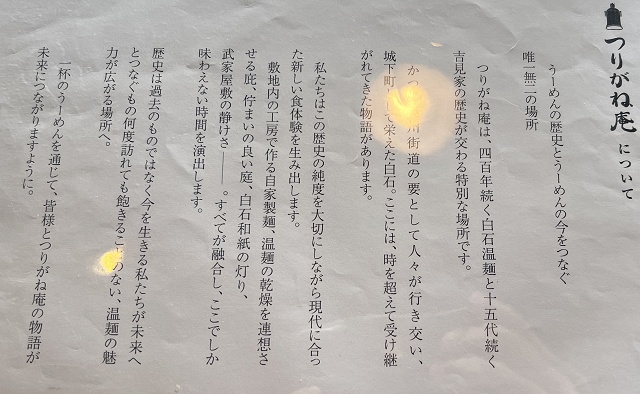 つりがね庵について
うーめんの歴史とうーめんの今をつなぐ
唯一無二の場所
つりがね庵は、四百年続く白石温麺と十五代続く
吉見家の歴史が交わる特別な場所です。
かつ 川街道の要として人々が行き交い、
城下町 て栄えた白石。ここには、時を超えて受け継
がれてきた物語があります。
私たちはこの歴史の純度を大切にしながら現代に合っ
た新しい食体験を生み出します。
敷地内の工房で作る自家製麺、温麺の乾燥を連想さ
せる庇、佇まいの良い庭、白石和紙の灯り、
武家屋敷の静けさ――。すべてが融合し、ここでしか
味わえない時間を演出します。
歴史は過去のものではなく今を生きる私たちが未来へ
とつなぐもの何度訪れても飽きることのない、温麺の魅
力が広がる場所へ。
一杯のうーめんを通じて、皆様とつりがね庵の物語が
未来につながりますように。